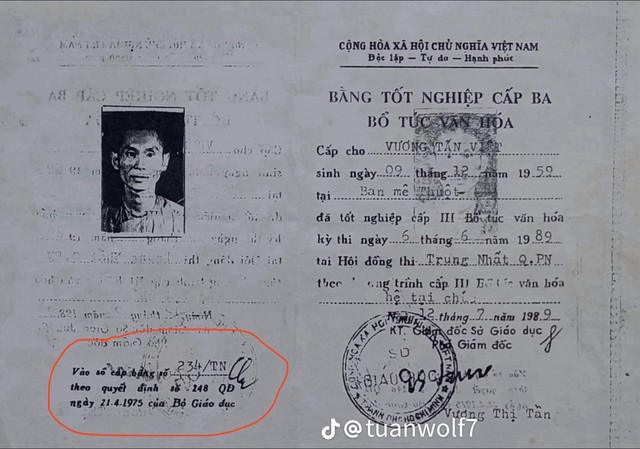 CỘNG HÒA XÃ HỘI CHỦ NGHĨA VIỆT NAM
Độc lập — Tự do — Hạnh phúc
BẰNG TỐT NGHIỆP CẤP BA
BỔ TÚC VĂN HÓA
Cấp cho VƯƠNG TẤN VIỆT
sinh ngày 09 tháng 12 năm 1959
tại Ban mê Thuột
đã tốt nghiệp cấp III Bổ túc văn hóa
kỳ thi ngày 6 tháng 6 năm 1989
tại Hội đồng thi Trung Nhất Q.PN
theo chương trình cấp III Bổ túc văn hóa
hệ tại chức
12 tháng 7 năm 1989
KT. Giám đốc Sở Giáo dục
Phó Giám đốc
Vương Thị Tần
Vào sổ cấp bằng số 234/TN
theo quyết định số 248 QĐ
ngày 21.4.1975 của Bộ Giáo dục
@tuanwolf7